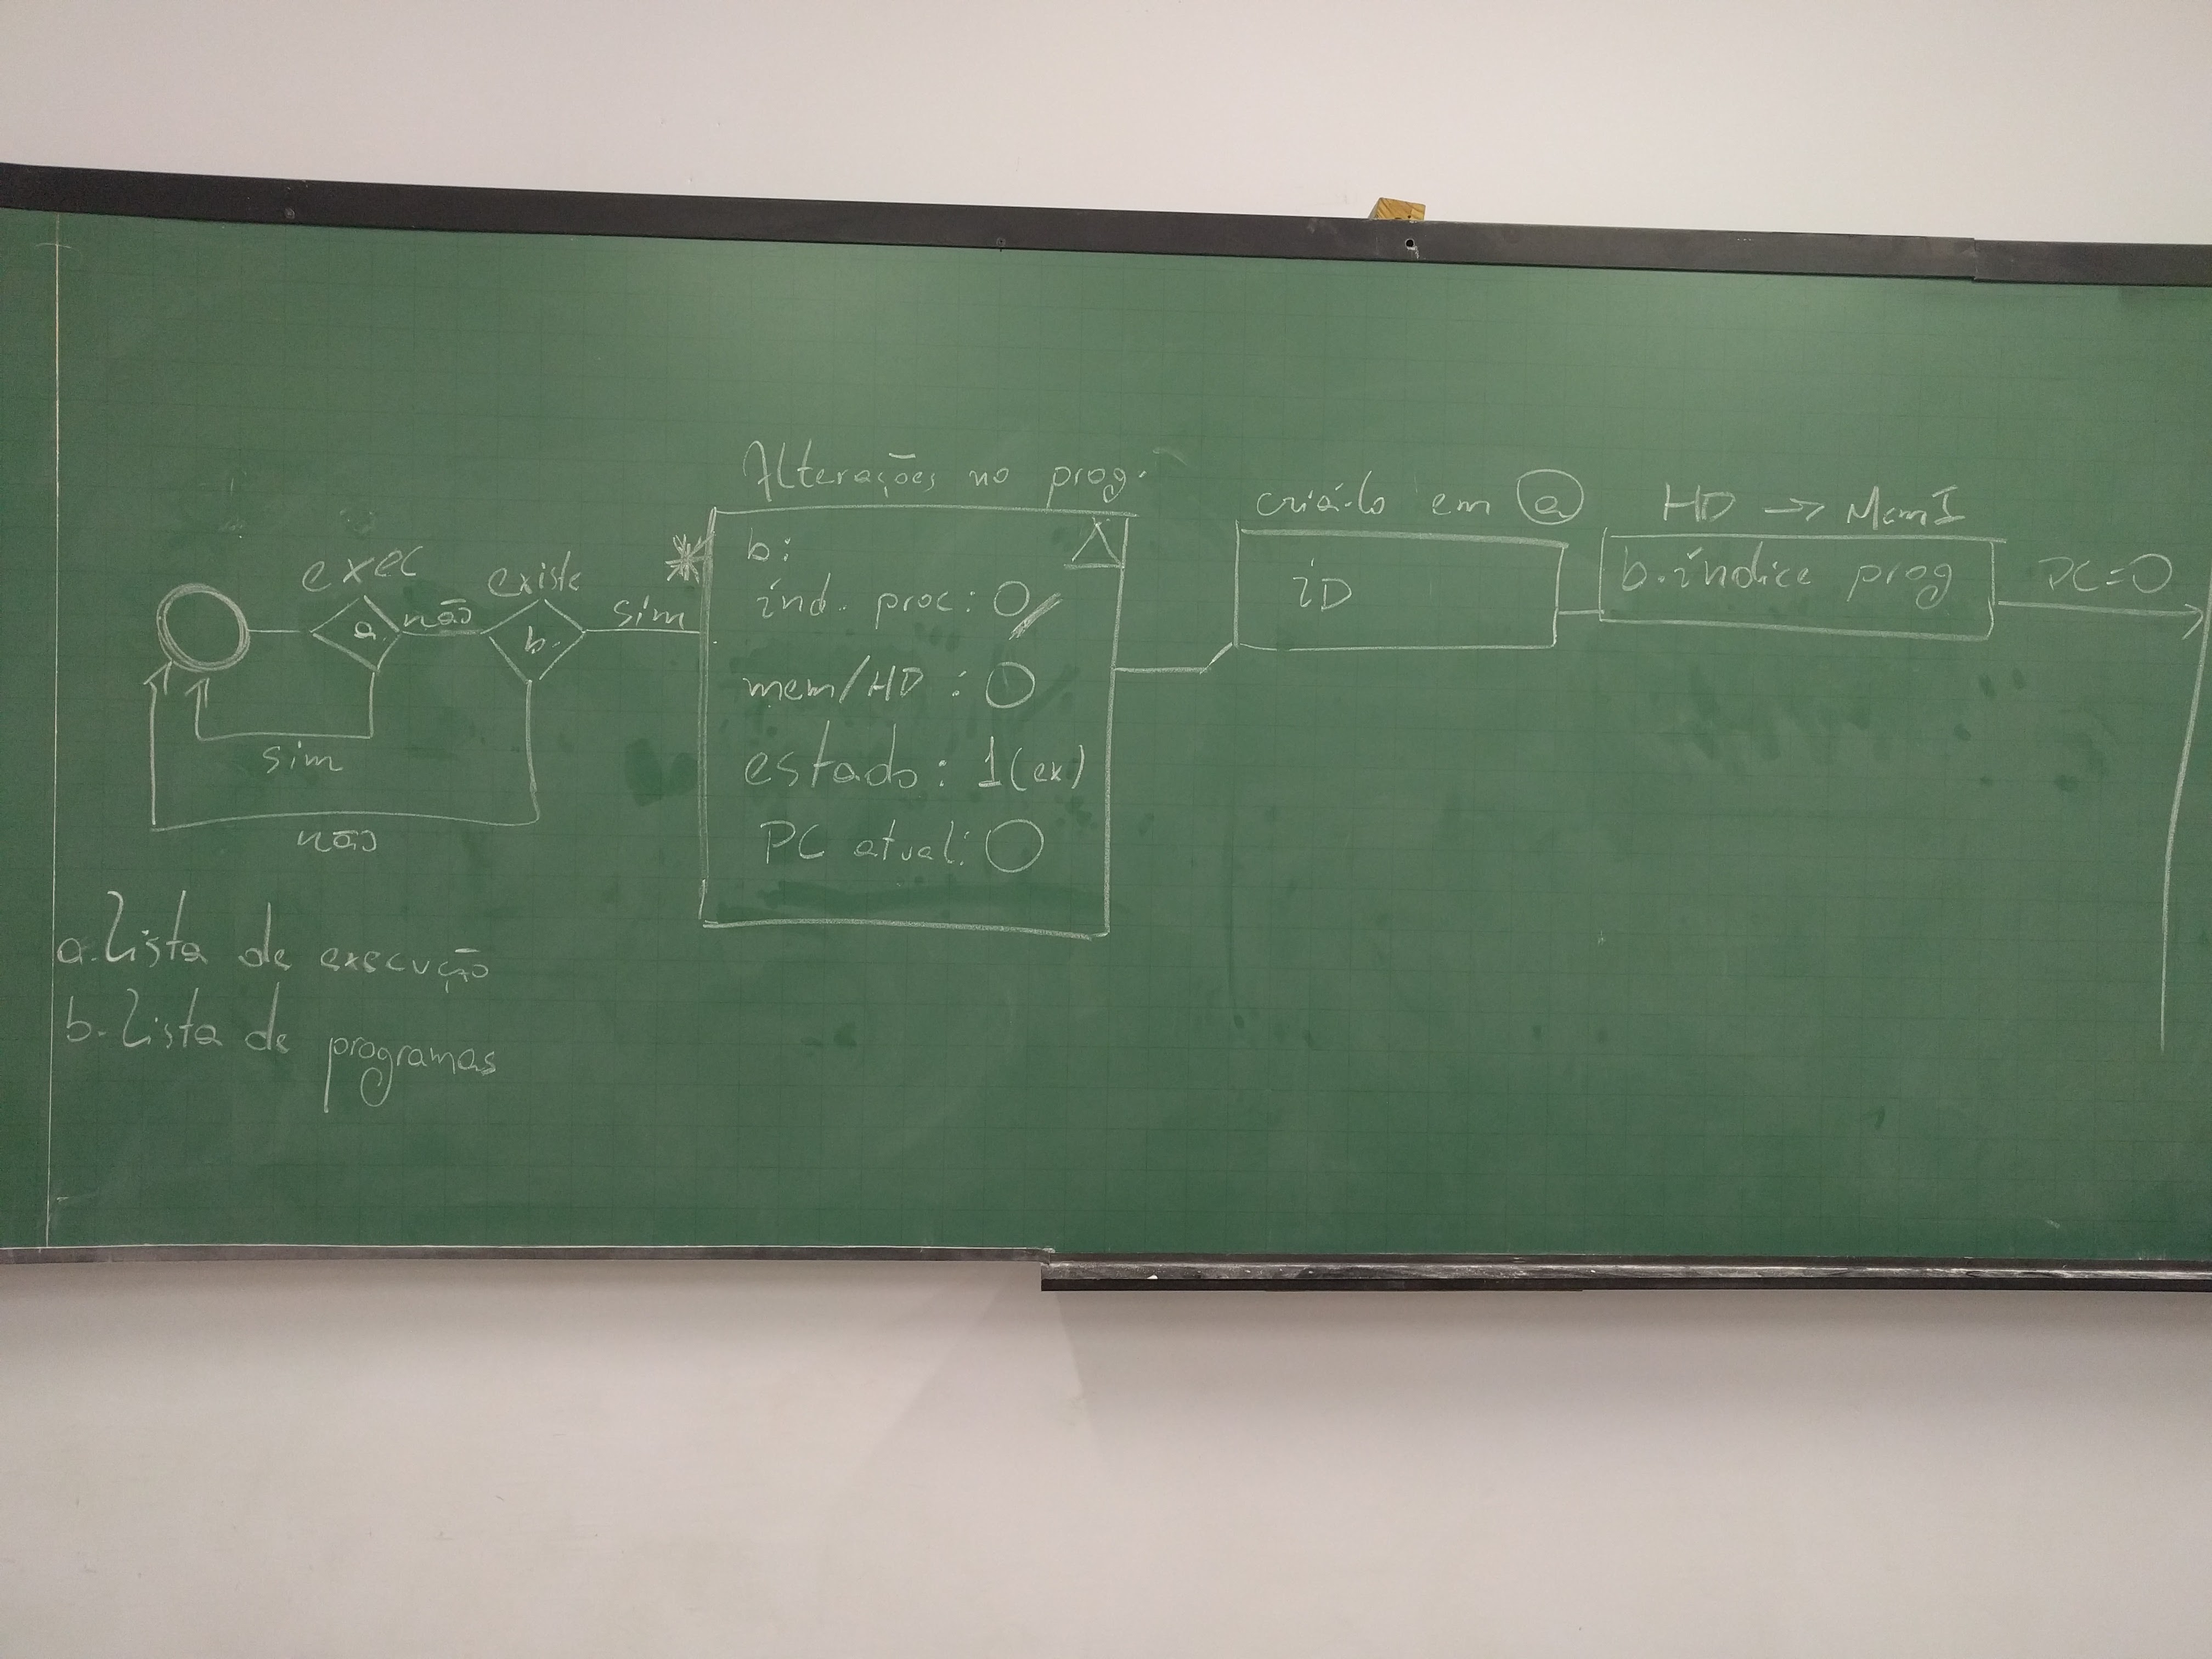 exec
a.
não
existe
b.
sim
sim
não
Alterações no prog.
b:
índ. proc: 0
mem/HD : 0
estado: 1(ex)
PC atual: 0
criá-lo em a
iD
HD -> MemI
b.índice prog
PC=0
a.Lista de execução
b-Lista de programas